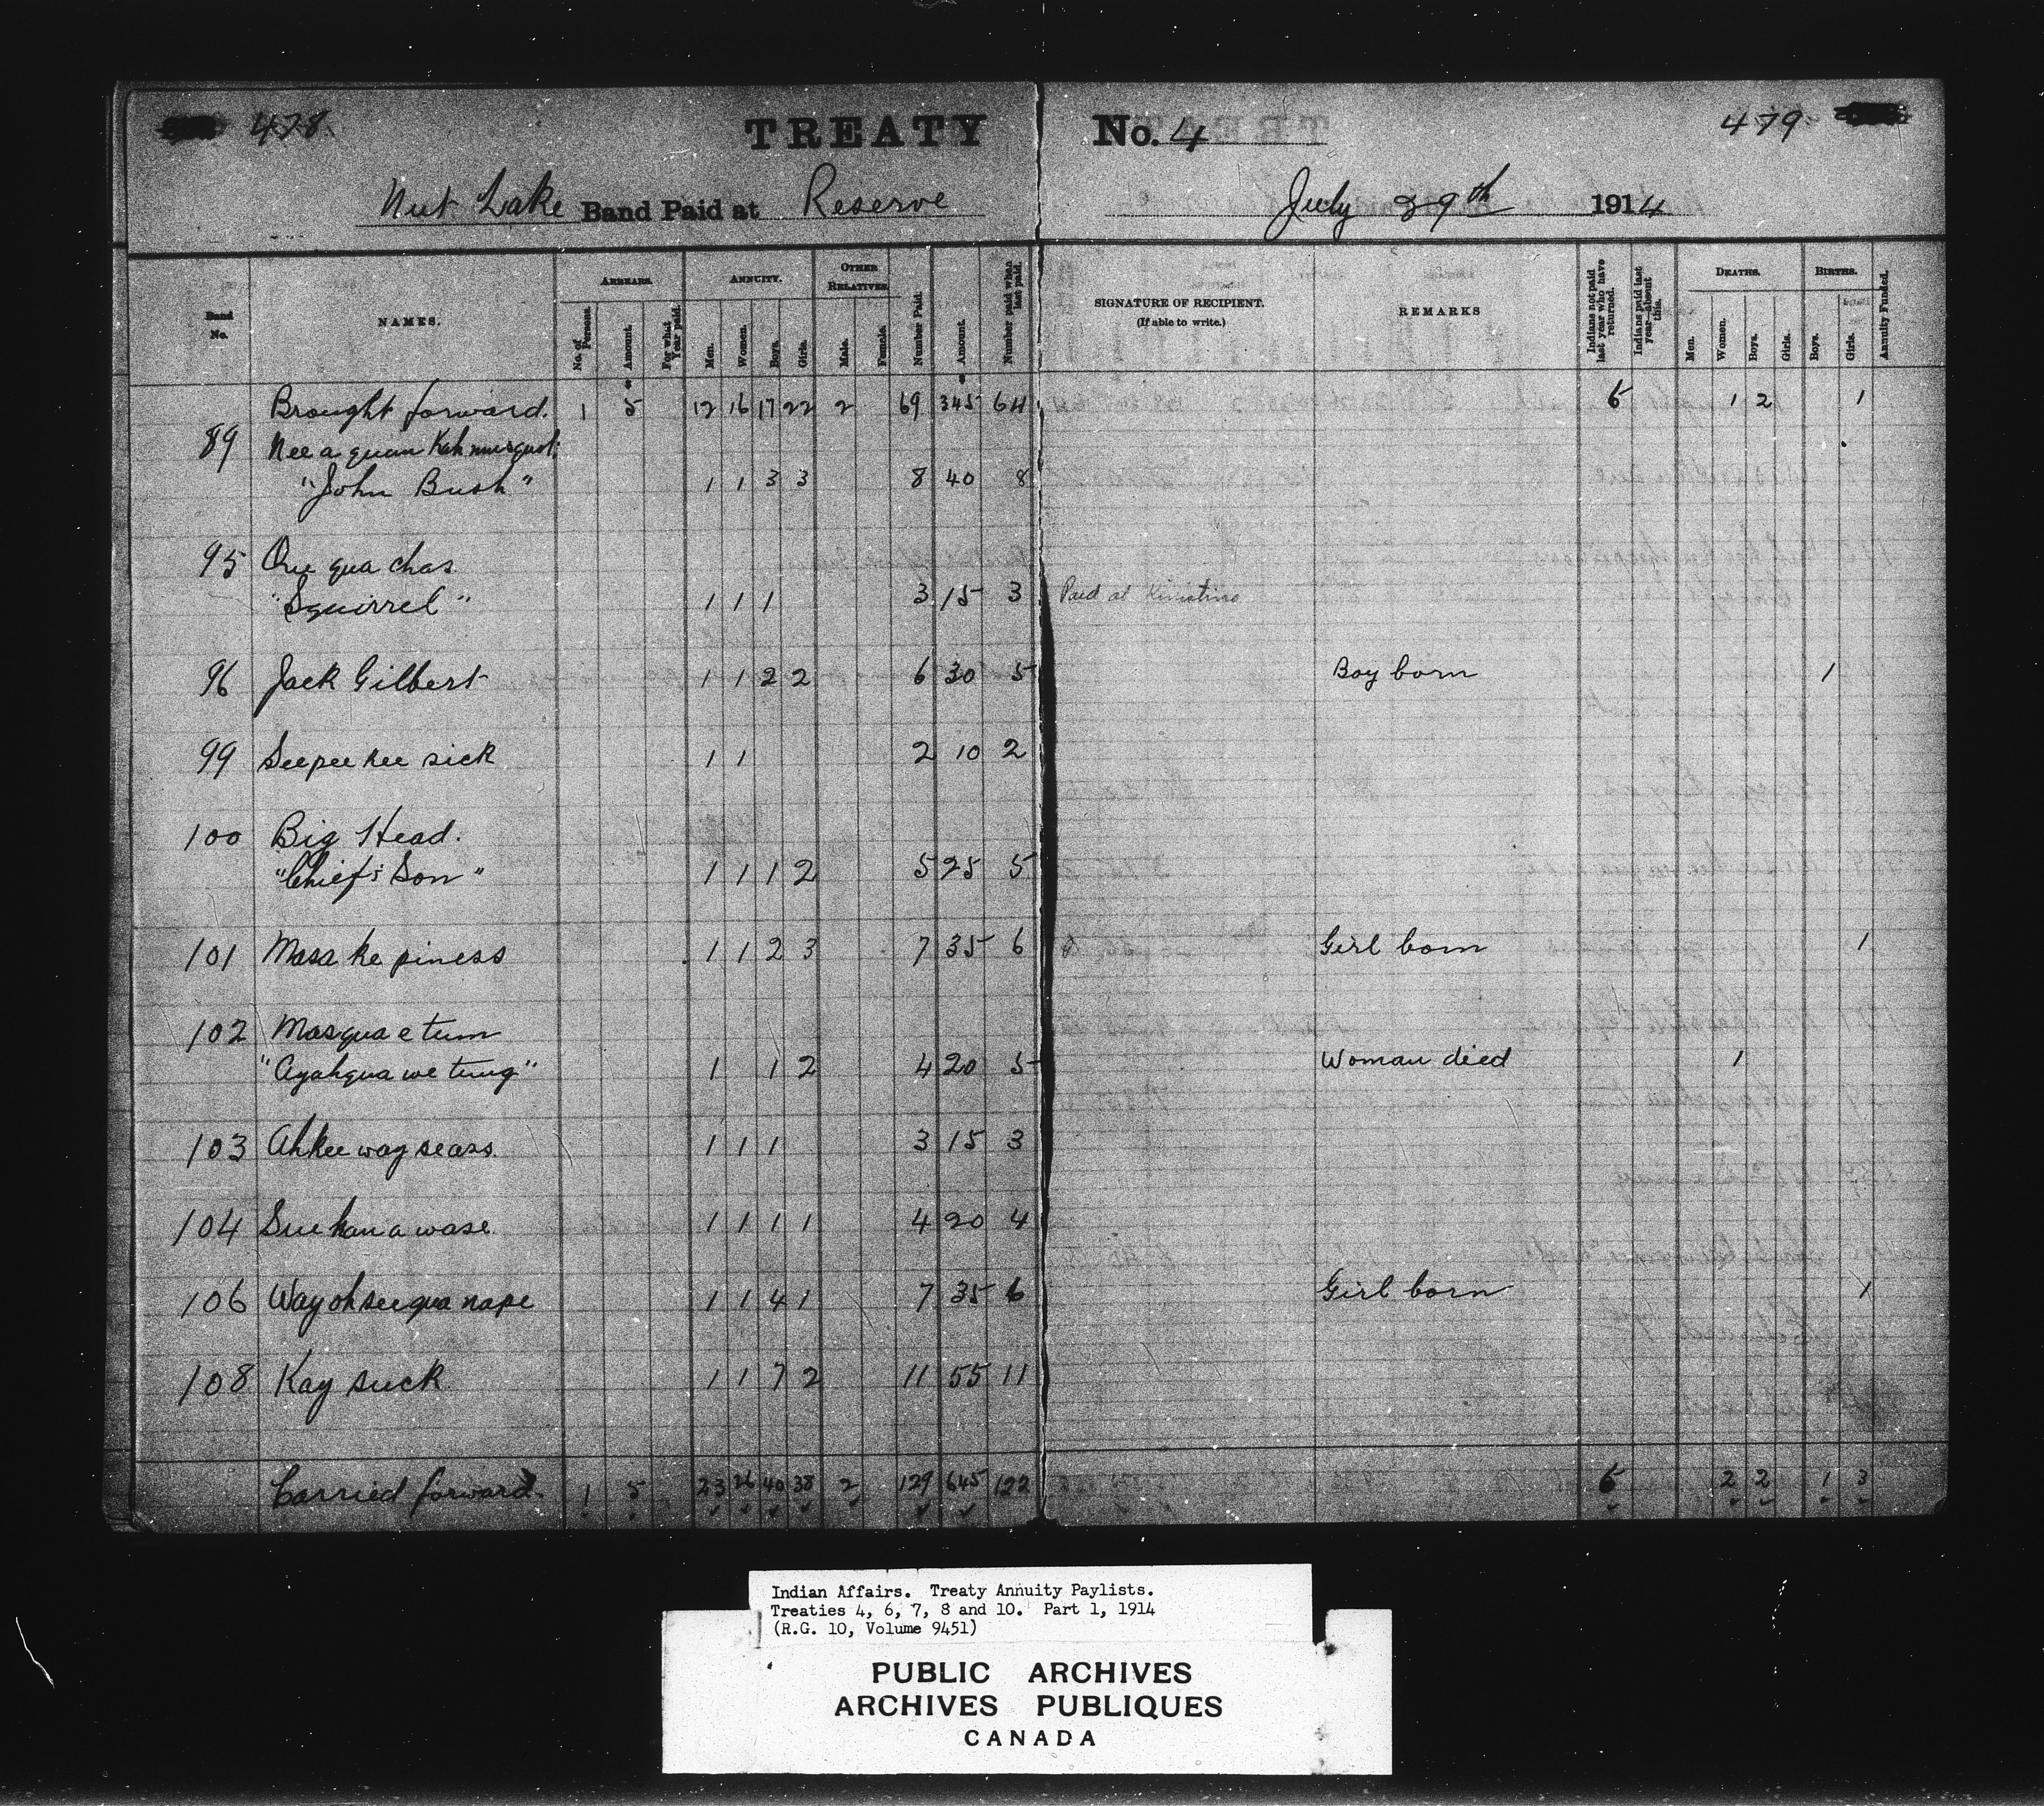 478. TREATY No. 4 479
Nut Lake Band Paid at Reserve July 29th 1914
Band No. NAMES. ARREARS. No. of Persons. Amount. For what Year paid. ANNUITY. Men. Women. Boys. Girls. OTHER RELATIVES. Male. Female. Number Paid. Amount. Number paid when last paid. SIGNATURE OF RECIPIENT. (If able to write.) REMARKS Indians not paid last year who have returned. Indians paid last year—absent this. DEATHS. Men. Women. Boys. Girls. BIRTHS. Boys. Girls. Annuity Funded.
Brought forward. 1 5 12 16 17 22 2 69 345 64 5 1 2 1
89 Nee a quan Kah
"John Bush" 1 1 3 3 8 40 8
95 One qua chas
"Squirrel" 1 1 1 3 15 3 Paid at Kinistino
96 Jack Gilbert 1 1 2 2 6 30 5 Boy born 1
99 Seepee kee sick 1 1 2 10 2
100 Big Head.
"Chief's Son" 1 1 1 2 5 25 5
101 Masa ke piness 1 1 2 3 7 35 6 Girl born 1
102 Masqua e tum
"Ayahqua we tung" 1 1 2 4 20 5 Woman died 1
103 Ahkee way seass. 1 1 1 3 15 3
104 Sue kan a wase. 1 1 1 1 4 20 4
106 Way oh see qua nape 1 1 4 1 7 35 6 Girl born 1
108 Kay suck 1 1 7 2 11 55 11
Carried forward. 1 5 23 26 40 38 2 129 645 122 5 2 2 1 3
Indian Affairs. Treaty Annuity Paylists.
Treaties 4, 6, 7, 8 and 10. Part 1, 1914
(R.G. 10, Volume 9451)
PUBLIC ARCHIVES
ARCHIVES PUBLIQUES
CANADA